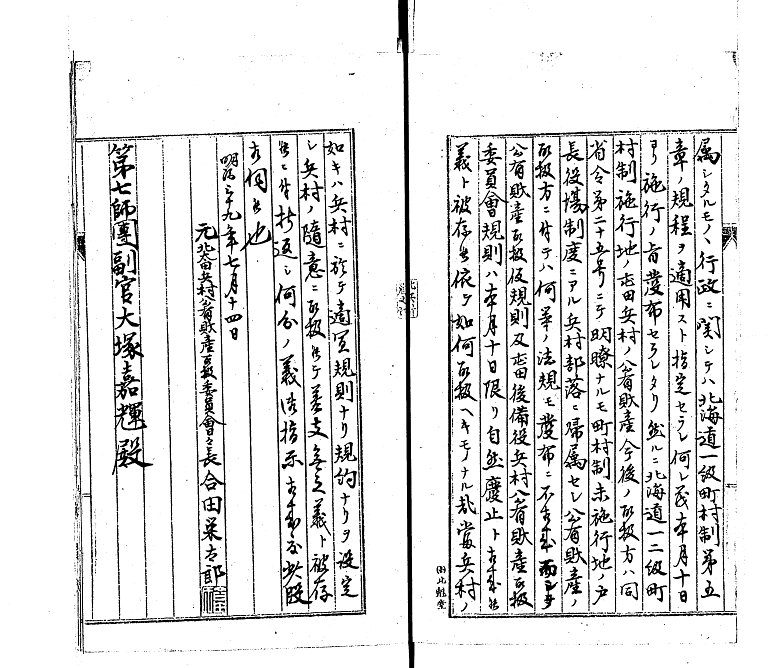 属シタルモノハ行政ニ関シテハ北海道一級町村制第五
章ノ規程ヲ適用スト指定セラレ何レモ本月十日
ヨリ施行ノ旨発布セラレタリ然ルニ北海道一二級町
村制施行地ノ屯田兵村ノ公有財産今後ノ取扱方ハ同
省令第二十五号ニテ明瞭ナルモ町村制未施行地ノ戸
長役場制度ニアル兵村部落ニ帰属セシ公有財産ノ
取扱方ニ付テハ何等ノ法規モ発布ニ不相成而シテ
公有財産取扱仮規則及屯田後備役兵村公有財産取扱
委員會規則ハ本月十日限リ自然廢止ト相成候
義ト被存候依テ如何取扱ヘキモノナル哉當兵村ノ
如キハ兵村ニ於テ適宜規則ナリ規約ナリヲ設定
シ兵村ノ随意ニ取扱候テ差支無之義ト被存
候ニ付折返シ何分ノ義御指示相成度此段
相伺候也
明治三十九年七月十四日
元北太田兵村公有財産取扱委員會々長合田栄太郎
第七師團副官大塚嘉輝殿